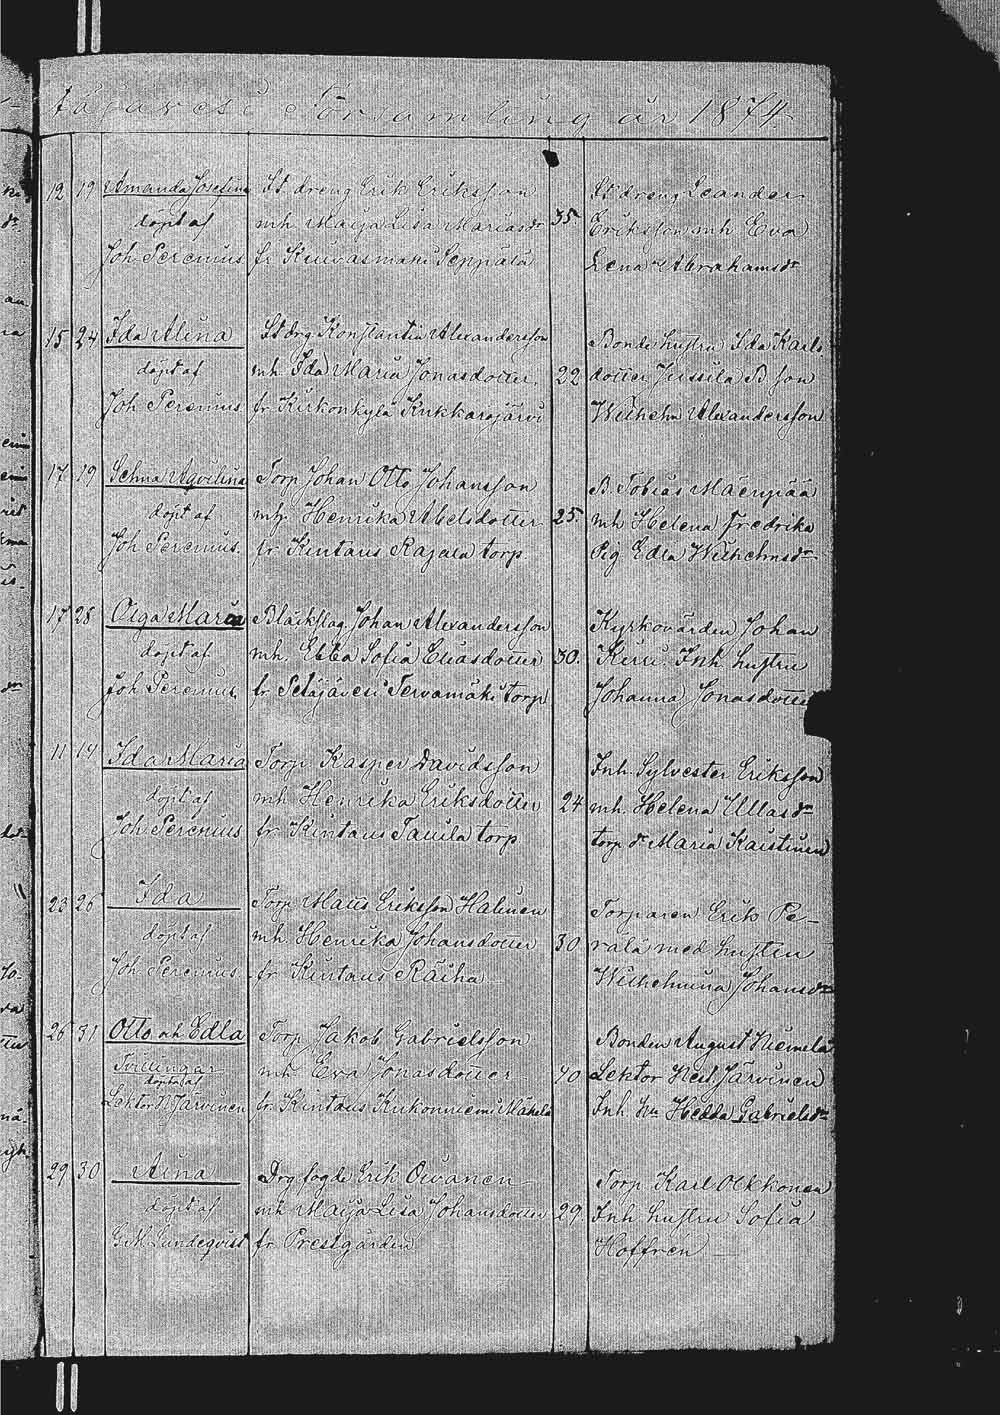 församling år 1874.
12 19 Amanda Josefina St. dreng Erik Eriksson St. dreng Leander
döpt af mh Maija Lisa Mariasdr 35. Eriksson mh Eva
Joh. Perenius fr Kuivasmäki Seppälä Lena Abrahamsdr
15 24 Ida Alina St drg Konstantin Alexandersson Bonde hustru Ida Karls
döpt af mh. Ida Maria Jonasdotter. 22 dotter Jussila B son
Joh Perenius fr Kirkonkylä Kukkarojärvi Wilhelm Alexandersson
17 19 Selma Aqvilina Torp Johan Otto Johansson B. Tobias Mäenpää
döpt af mh. Henrika Abelsdotter 25. mh Helena Fredrika
Joh Perenius. fr Kintaus Rajala torp Pig Edla Wilhelmsdr
17 28 Olga Maria Bläckslag. Johan Alexandersson Kyrkovärden Johan
döpt af mh. Ebba Sofia Eliasdotter 30. Inh hustru
Joh Perenius. fr Petäjävesi Tervamäki torp Johanna Jonasdotter
11 14 Ida Maria Torp Kasper Davidsson Inh. Sylvester Eriksson
döpt af mh Henrika Eriksdotter 24 mh. Helena Ullasdr
Joh Perenius fr Kintaus Tauila torp torp dr Maria Kaistinen
23 26 Ida Torp Matts Eriksson Halinen Torparen Erik Pe-
döpt af mh. Henrika Johansdotter 30 rälä med hustru
Joh Perenius fr Kintaus Räihä Wilhelmina Johansdr
26 31 Otto och Edla Torp Jakob Gabrielsson Bonden August Niemelä
Tvillingar mh Eva Jonasdotter 40 Lektor Järvinen
döpta af
Lektor N Järvinen fr Kintaus Kukonniemi Mäkelä Inh hu Hedda Gabrielsdr
29 30 Aina Drg fogde Erik Oivanen Torp Karl Olkkonen
döpt af mh Maija Lisa Johansdotter 29. Inh hustru Sofia
G. M. Lundeqvist fr Prestgården Hoffrén